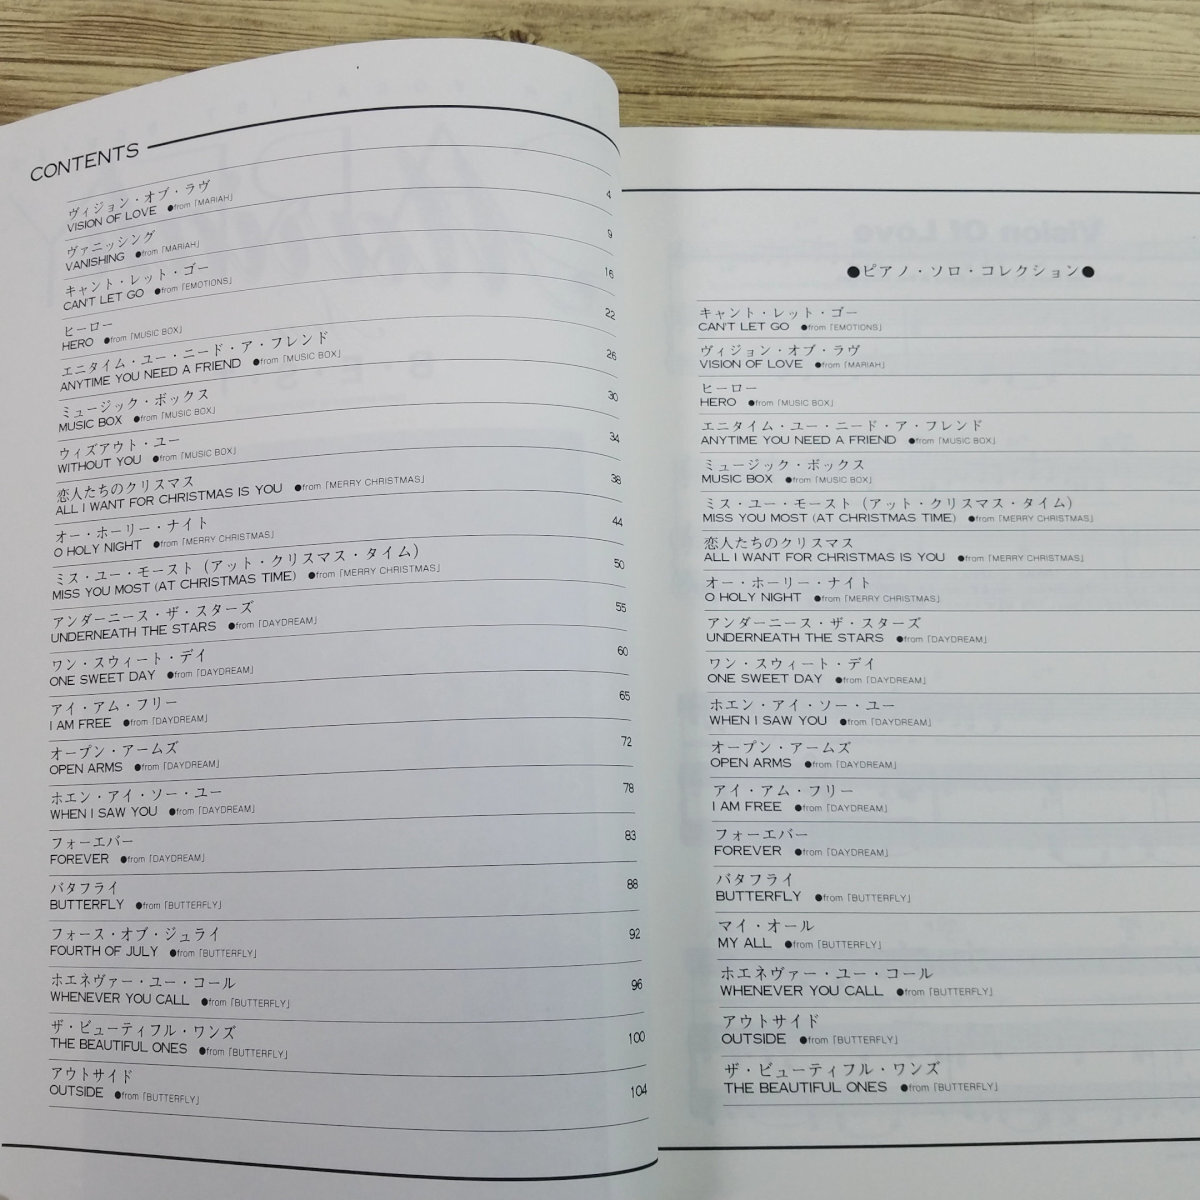 CONTENTS
ヴィジョン・オブ・ラヴ
VISION OF LOVE ●from「MARIAH」 4
ヴァニッシング
VANISHING ●from「MARIAH」 9
キャント・レット・ゴー
CAN'T LET GO ●from「EMOTIONS」 16
ヒーロー
HERO ●from「MUSIC BOX」 22
エニタイム・ユー・ニード・ア・フレンド
ANYTIME YOU NEED A FRIEND ●from「MUSIC BOX」 26
ミュージック・ボックス
MUSIC BOX ●from「MUSIC BOX」 30
ウィズアウト・ユー
WITHOUT YOU ●from「MUSIC BOX」 34
恋人たちのクリスマス
ALL I WANT FOR CHRISTMAS IS YOU ●from「MERRY CHRISTMAS」 38
オー・ホーリー・ナイト
O HOLY NIGHT ●from「MERRY CHRISTMAS」 44
ミス・ユー・モースト（アット・クリスマス・タイム）
MISS YOU MOST (AT CHRISTMAS TIME) ●from「MERRY CHRISTMAS」 50
アンダーニース・ザ・スターズ
UNDERNEATH THE STARS ●from「DAYDREAM」 55
ワン・スウィート・デイ
ONE SWEET DAY ●from「DAYDREAM」 60
アイ・アム・フリー
I AM FREE ●from「DAYDREAM」 65
オープン・アームズ
OPEN ARMS ●from「DAYDREAM」 72
ホエン・アイ・ソー・ユー
WHEN I SAW YOU ●from「DAYDREAM」 78
フォーエバー
FOREVER ●from「DAYDREAM」 83
バタフライ
BUTTERFLY ●from「BUTTERFLY」 88
フォース・オブ・ジュライ
FOURTH OF JULY ●from「BUTTERFLY」 92
ホエネヴァー・ユー・コール
WHENEVER YOU CALL ●from「BUTTERFLY」 96
ザ・ビューティフル・ワンズ
THE BEAUTIFUL ONES ●from「BUTTERFLY」 100
アウトサイド
OUTSIDE ●from「BUTTERFLY」 104
●ピアノ・ソロ・コレクション●
キャント・レット・ゴー
CAN'T LET GO ●from「EMOTIONS」
ヴィジョン・オブ・ラヴ
VISION OF LOVE ●from「MARIAH」
ヒーロー
HERO ●from「MUSIC BOX」
エニタイム・ユー・ニード・ア・フレンド
ANYTIME YOU NEED A FRIEND ●from「MUSIC BOX」
ミュージック・ボックス
MUSIC BOX ●from「MUSIC BOX」
ミス・ユー・モースト（アット・クリスマス・タイム）
MISS YOU MOST (AT CHRISTMAS TIME) ●from「MERRY CHRISTMAS」
恋人たちのクリスマス
ALL I WANT FOR CHRISTMAS IS YOU ●from「MERRY CHRISTMAS」
オー・ホーリー・ナイト
O HOLY NIGHT ●from「MERRY CHRISTMAS」
アンダーニース・ザ・スターズ
UNDERNEATH THE STARS ●from「DAYDREAM」
ワン・スウィート・デイ
ONE SWEET DAY ●from「DAYDREAM」
ホエン・アイ・ソー・ユー
WHEN I SAW YOU ●from「DAYDREAM」
オープン・アームズ
OPEN ARMS ●from「DAYDREAM」
アイ・アム・フリー
I AM FREE ●from「DAYDREAM」
フォーエバー
FOREVER ●from「DAYDREAM」
バタフライ
BUTTERFLY ●from「BUTTERFLY」
マイ・オール
MY ALL ●from「BUTTERFLY」
ホエネヴァー・ユー・コール
WHENEVER YOU CALL ●from「BUTTERFLY」
アウトサイド
OUTSIDE ●from「BUTTERFLY」
ザ・ビューティフル・ワンズ
THE BEAUTIFUL ONES ●from「BUTTERFLY」